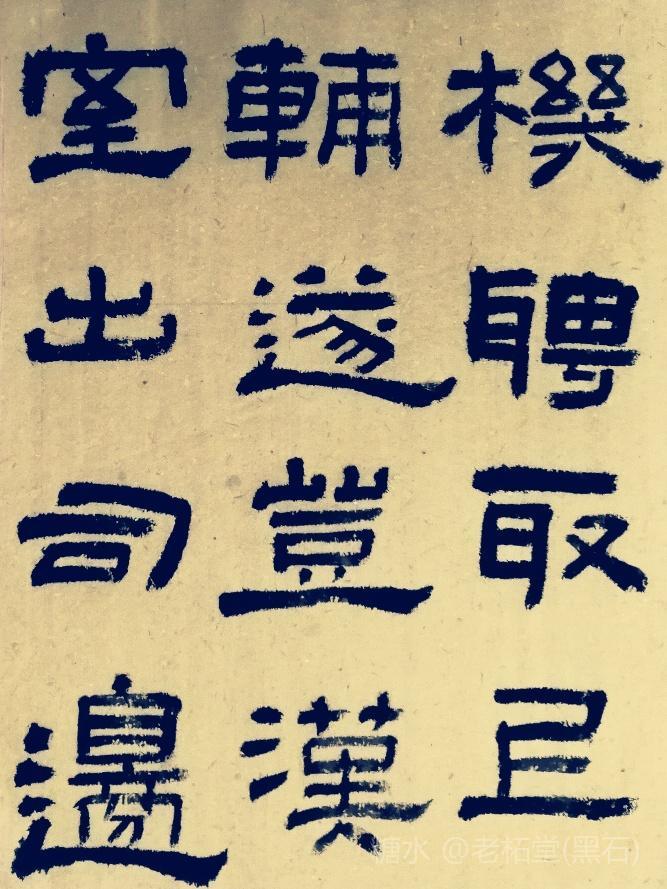 機聘取
輔遂豈漢
室出司邊
糖水 @老柘堂(黑石)